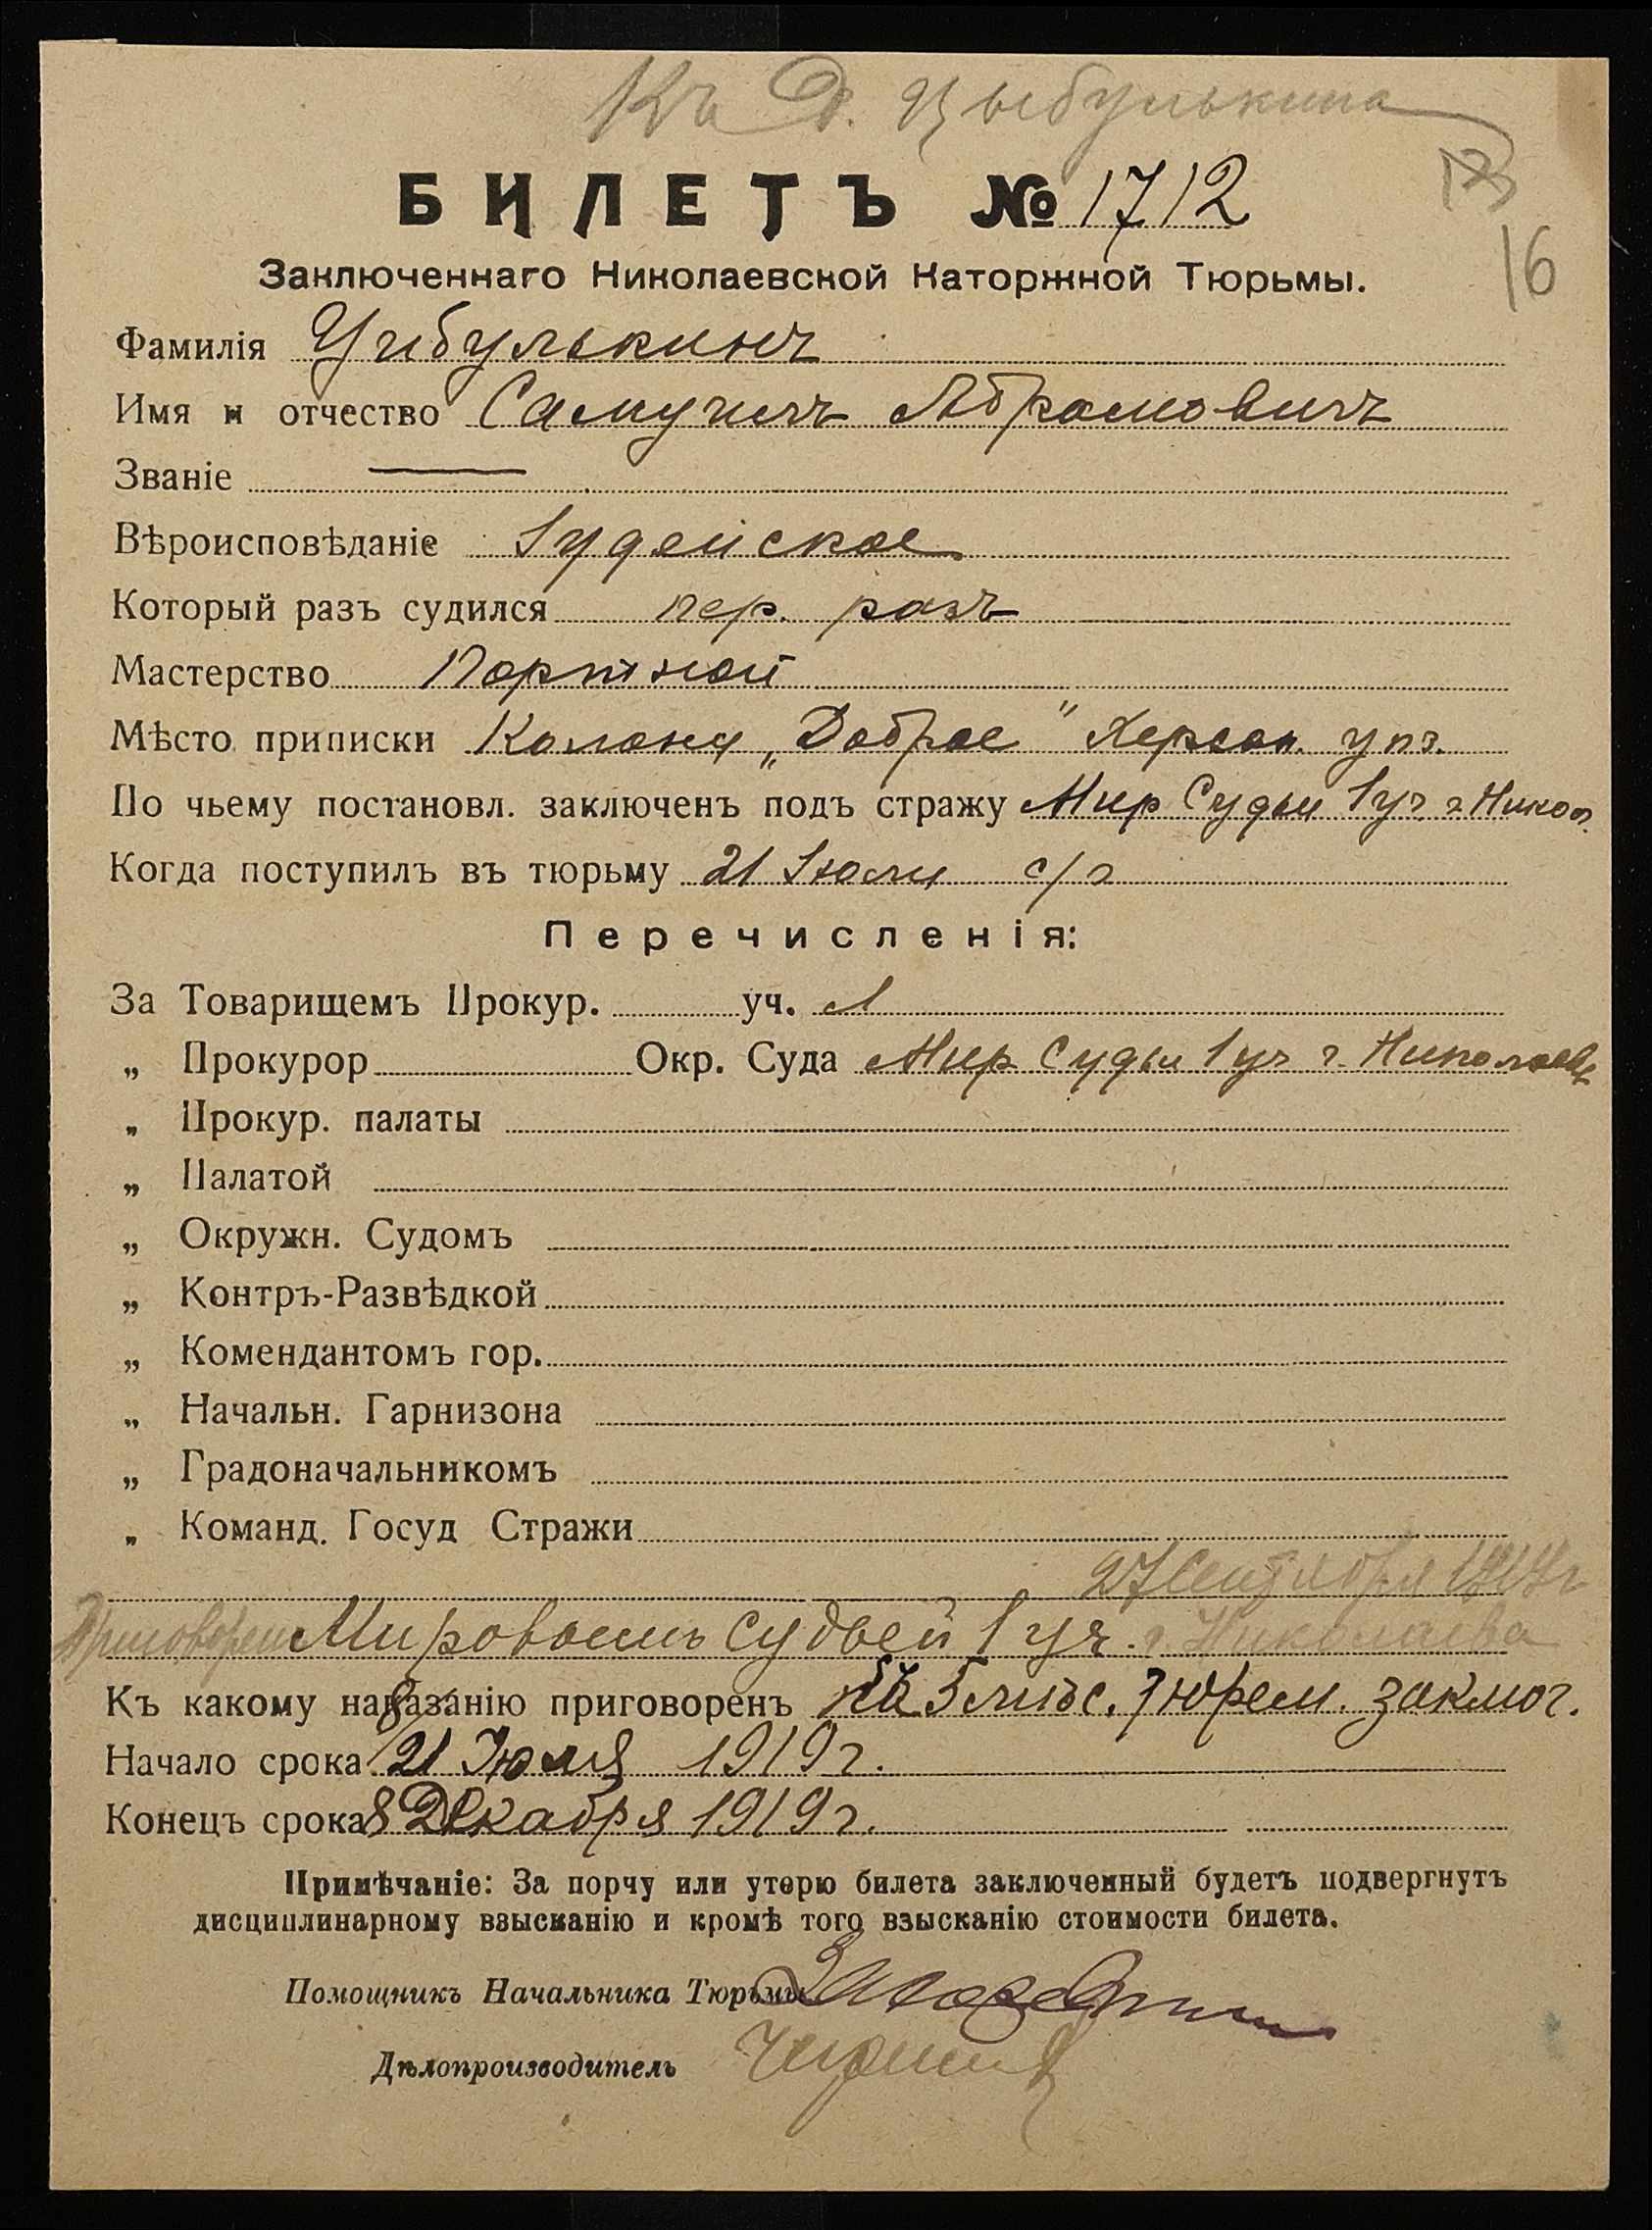 Къ Д. Цыбулькина
БИЛЕТЪ № 1712
16
Заключеннаго Николаевской Каторжной Тюрьмы.
Фамилія Цибулькинъ
Имя и отчество Самуилъ Абрамовичъ
Званіе —
Вѣроисповѣданіе Іудейское
Который разъ судился пер. разъ
Мастерство Портной
Мѣсто приписки Колонія „Доброе" Херсон. у
По чьему постановл. заключенъ подъ стражу Мир Судьи 1 уч. г. Никол.
Когда поступилъ въ тюрьму 21 Іюля с/г
Перечисленія:
За Товарищемъ Прокур. уч.
„ Прокурор Окр. Суда Мир Судьи 1 уч г. Николаева
„ Прокур. палаты
„ Палатой
„ Окружн. Судомъ
„ Контръ-Развѣдкой
„ Комендантомъ гор.
„ Начальн. Гарнизона
„ Градоначальникомъ
„ Команд. Госуд Стражи
27 Сентября 1919 г
Приговорен Мировымъ Судьей 1 уч. г. Николаева
Къ какому наказанію приговоренъ на 5 мѣс. тюрем. заключ.
Начало срока 21 Іюля 1919 г.
Конецъ срока 8 Декабря 1919 г.
Примѣчаніе: За порчу или утерю билета заключенный будетъ подвергнутъ
дисциплинарному взысканію и кромѣ того взысканію стоимости билета.
Помощникъ Начальника Тюрьмы
Дѣлопроизводитель